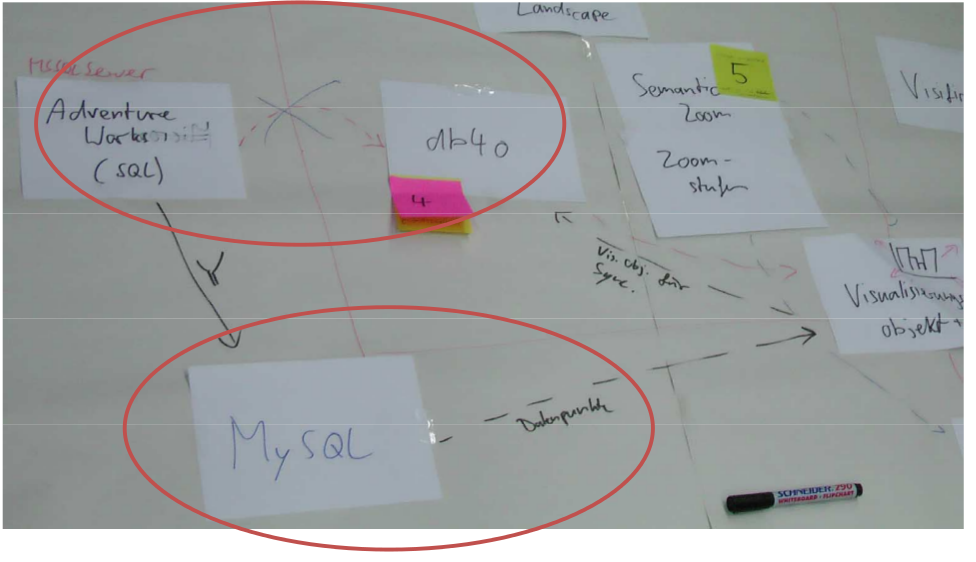 Landscape
MSSQL Server
Adventure
Works
(SQL)
db4o
4
Semantic
Zoom
5
Zoom-
stufen
Vis. Obj. für
Sync.
Visualisierungs
objekt
MySQL
Datenpunkte
SCHNEIDER 290
WHITEBOARD + FLIPCHART